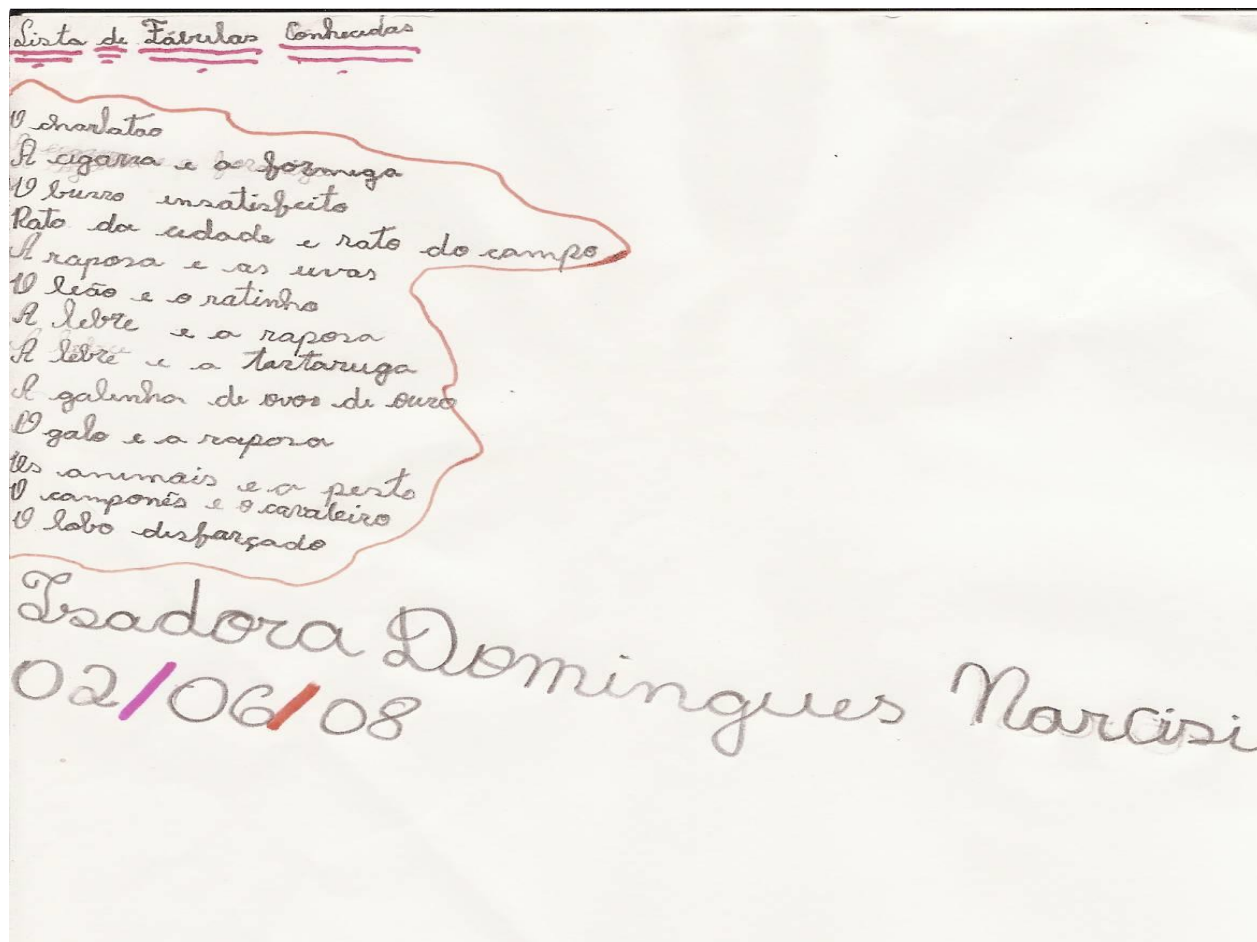 Lista de Fábulas Conhecidas
O charlatão
A cigarra e a formiga
O burro insatisfeito
Rato da cidade e rato do campo
A raposa e as uvas
O leão e o ratinho
A lebre e a raposa
A lebre e a tartaruga
A galinha de ovos de ouro
O galo e a raposa
Os animais e a peste
O camponês e o cavaleiro
O lobo disfarçado
Isadora Domingues Narcisi
02/06/08